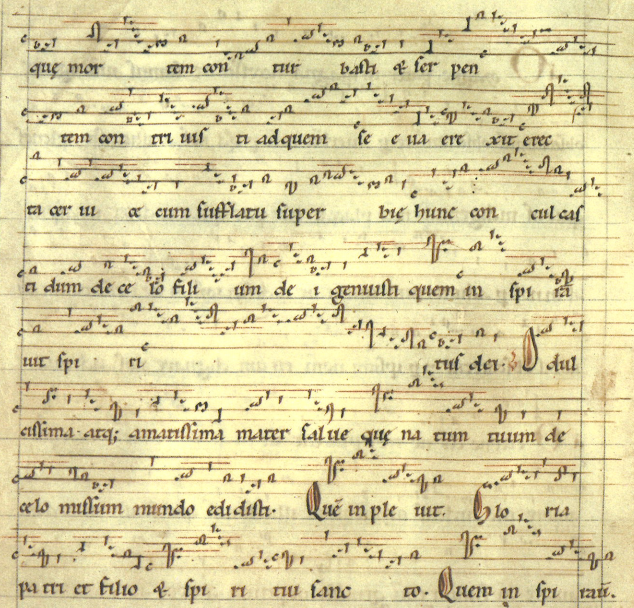 quę mor tem con tur basti & ser pen
tem con tri uis ti ad quem se e ua ere xit erec
ta cer ui ce cum sufflatu super bię hunc con cul cas
ti dum de ce lo fili um de i genuisti quem in spi rā
uit spi ri tus dei. O dul
cissima. atq; amatissima mater salue quę na tum tuum de
celo missum mundo edidisti. Quē in ple uit. Glo ria
pa tri et filio & spi ri tui sanc to. Quem in spi rauit.